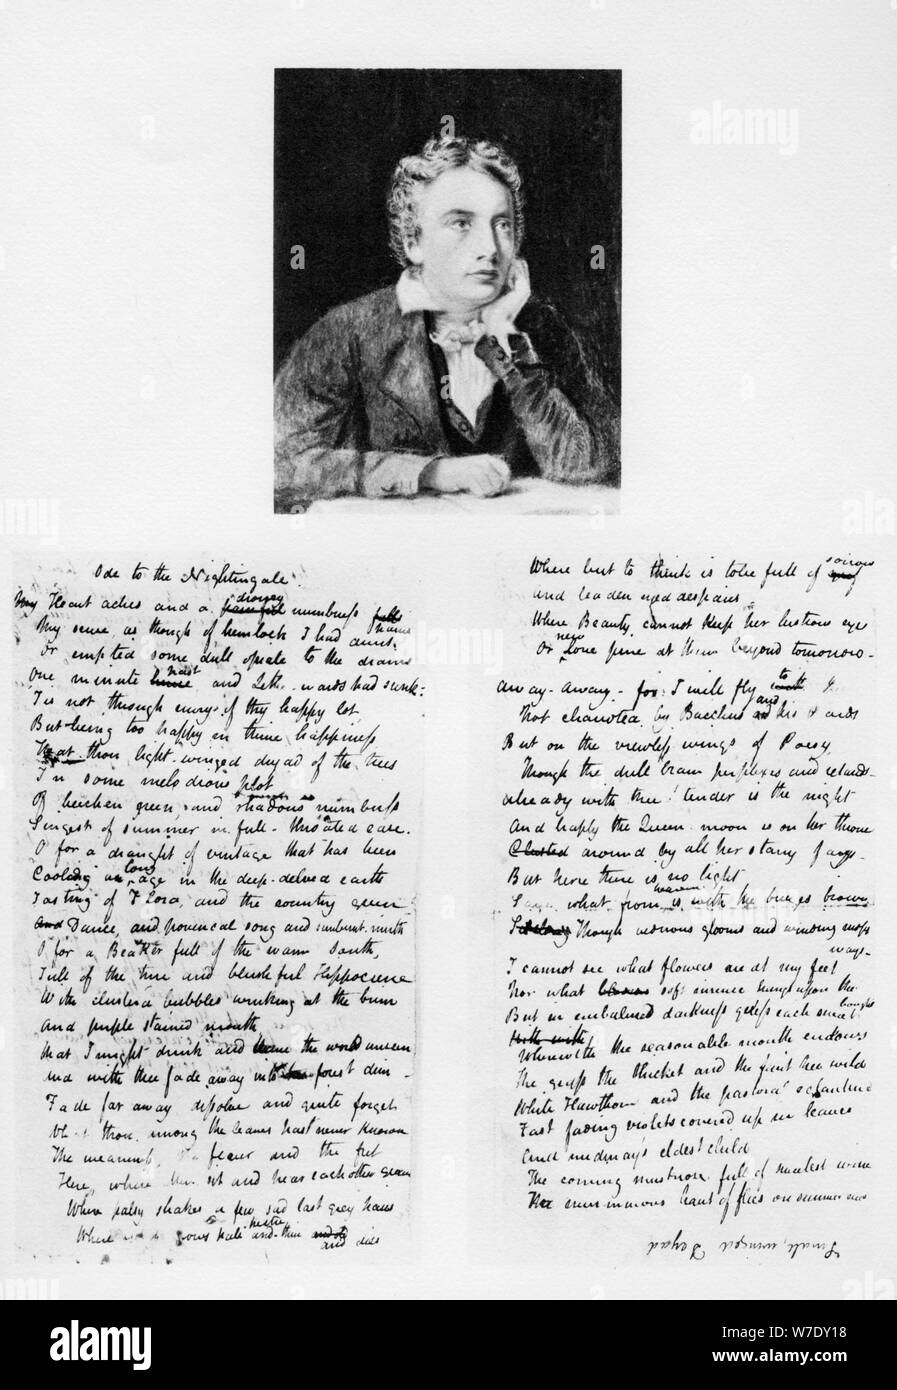 Ode to the Nightingale.
My Heart aches and a painful drowsy numbness falls
My sense as though of hemlock I had drunk
Or emptied some dull opiate to the drains
One minute hence past and Lethe-wards had sunk:
Tis not through envy of thy happy lot
But being too happy in thine happiness
That thou light-winged dryad of the trees
In some melodious plot
Of beechen green, and shadows numberless
Singest of summer in full-throated ease.
O for a draught of vintage that has been
Cooling an long age in the deep-delved earth
Tasting of Flora, and the country green
And Dance, and provencal song and sunburnt mirth
O for a Beaker full of the warm South,
Full of the true and blushful Hippocrene
With cluster'd bubbles winking at the brim
And purple stained mouth
That I might drink and leave the world unseen
And with thee fade away into the forest dim -
Fade far away dissolve and quite forget
What thou among the leaves hast never known
The weariness, the fever and the fret
Here, where Men sit and hear each other groan
Where palsy shakes a few sad last grey hairs
Where grows pale and thin and old and dies
Where but to think is to be full of grief sorrow
and leaden eyed despairs
Where Beauty cannot keep her lustrous eyes
Or new Love pine at them beyond tomorrow-
Away-away-for I will fly with to thee
Not charioted by Bacchus and his Pards
But on the viewless wings of Poesy
Though the dull brain perplexes and retards-
Already with thee! tender is the night
And haply the Queen-moon is on her throne
Clusted around by all her starry fays-
But here there is no light
Save what from heaven is with the breezes blown
Sidelong Though verdurous glooms and winding mossy
ways-
I cannot see what flowers are at my feet
Nor what blooms soft incense hangs upon the
boughs
But in embalmed darkness guess each sweet
With with
Wherewith the seasonable month endows
The grass the thicket and the fruit tree wild
White Hawthorn and the pastoral eglantine
Fast fading violets covered up in leaves
And midmay's eldest child
The coming muskrose full of sweetest wine
The murmurous haunt of flies on summer eves
Small, winged Dryad
alamy
W7DY18
www.alamy.com